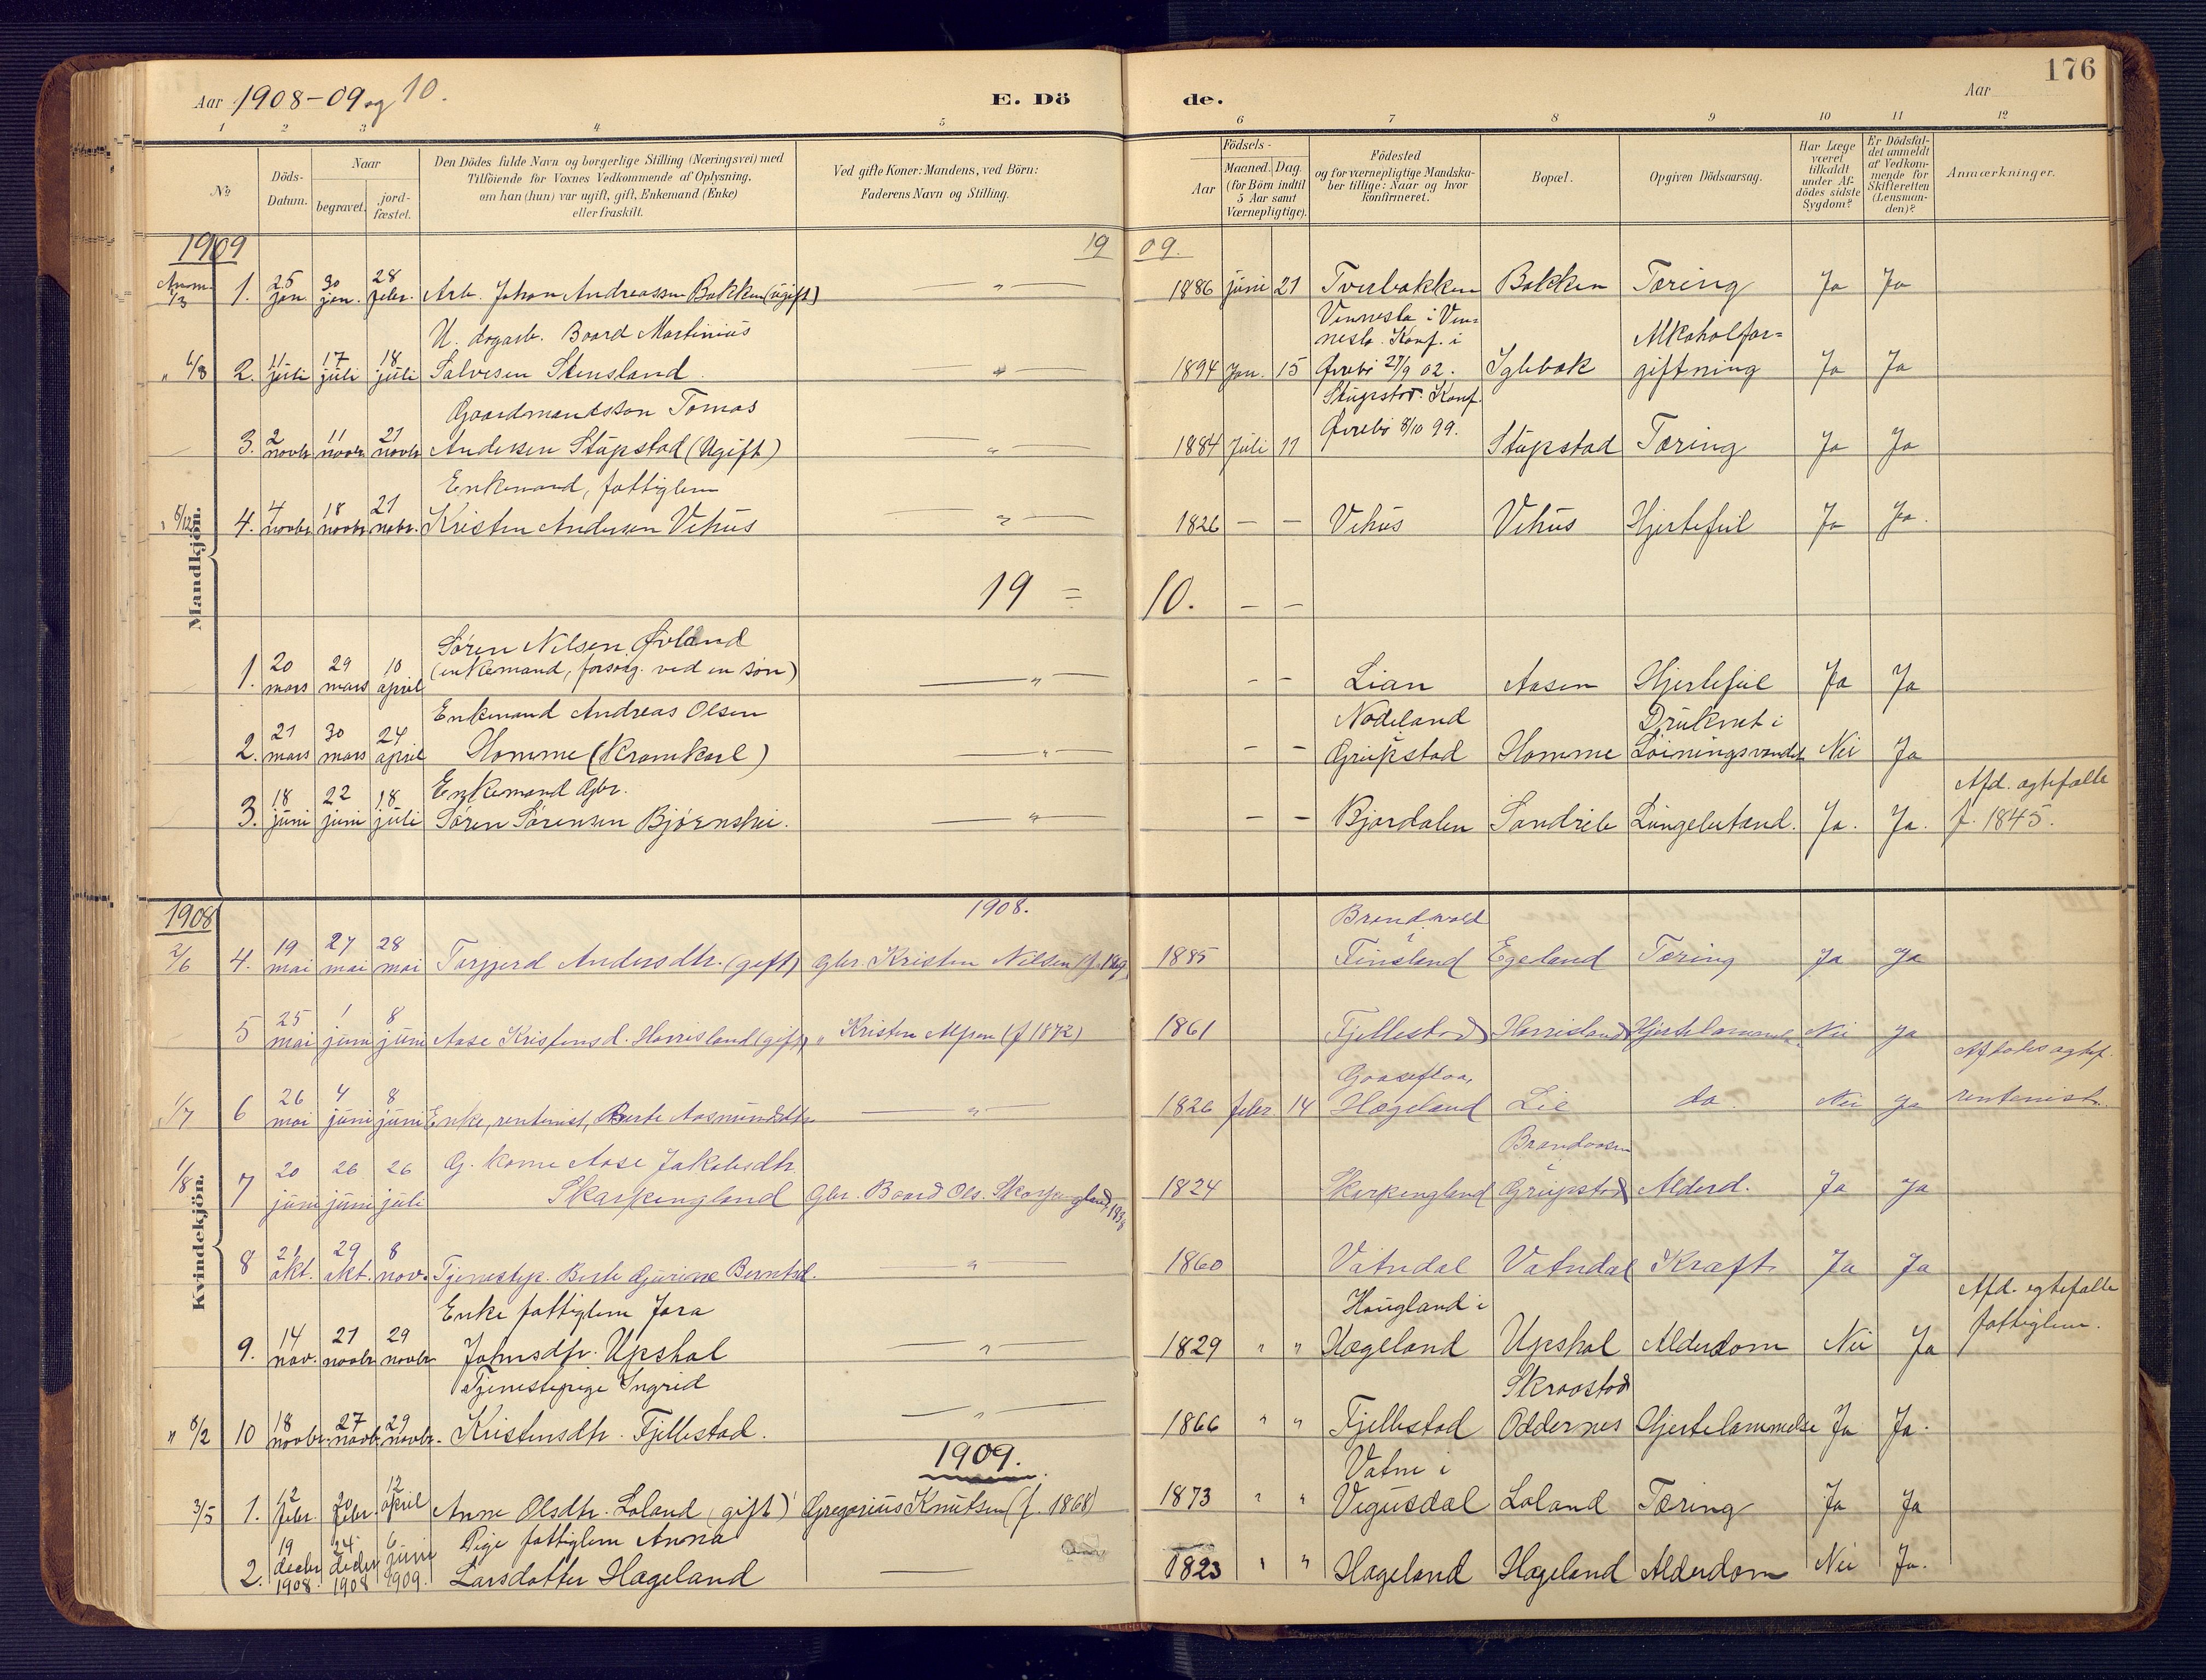 176
Aar 1908-09 og 10.
E. Dö de.
Aar
1 2 3 4 5 6 7 8 9 10 11 12
No
Döds-Datum.
Naar
begravet.
jord-fæstet.
Den Dödes fulde Navn og borgerlige Stilling (Næringsvei) med
Tilföiende for Voxnes Vedkommende af Oplysning,
om han (hun) var ugift, gift, Enkemand (Enke)
eller fraskilt.
Ved gifte Koner: Mandens, ved Börn:
Faderens Navn og Stilling.
Födsels-
Aar
Maaned. Dag.
(for Börn indtil
5 Aar samt
Værnepligtige).
Födested
og for værnepligtige Mandska-
ber tillige: Naar og hvor
konfirmeret.
Bopæl.
Opgiven Dödsaarsag.
Har Læge
været
tilkaldt
under Af-
dödes sidste
Sygdom?
Er Dödsfal-
det anmeldt
af Vedkom-
mende for
Skifteretten
(Lensman-
den)?
Anmærkninger.
Mandkjön.
1909 19 09.
Anm. 1/3 1. 25 jan. 30 jan. 28 febr. Arb. Johan Andreassen Bakken (ugift) " 1886 juni 21 Tverbakken Bakken Tæring Ja Ja
U. dagarb. Baard Martinius Vennesla i Ven=
nesla. Konf. i Alkoholfor=
" 6/8 2. 11 juli 17 juli 18 juli Salvesen Stensland. " 1894 Jan. 15 Øvrebö 27/9 02. Iglebæk giftning Ja Ja
Gaardmandssøn Tomas Stupstad. Konf.
3. 2 novbr 11 novbr 21 novbr Andersen Stupstad (Ugift) " 1884 Juli 11 Øvrebö 8/10 99. Stupstad Tæring Ja Ja
Enkemand, fattiglem
" 6/12 4. 4 novbr 18 novbr 21 novbr. Kristen Andersen Vehus " 1826 - - Vehus Vehus Hjertefeil Ja Ja.
19 = 10. - -
Søren Nilsen Øvland
1. 20 mars 29 mars 10 april (enkemand, forsörg. ved en søn) " - - Lian Aasen Hjertefeil Ja Ja
Enkemand Andreas Olsen Nodeland Druknet i
2. 21 mars 30 mars 24 april Homme (Kramkarl) " - - Grupstad Homme Loiningsvandet Nei Ja
Enkemand Gbr. Afd. egtefælle
3. 18 juni 22 juni 18 juli Søren Sørensen Bjørnshei. " - - Bjordalen Sandrib Lungebetænd. Ja. Ja. f. 1845.
Kvindekjön.
1908 1908.
2/6 4. 19 mai 27 mai 28 mai Torgjerd Andersdtr. (gift) gbr. Kristen Nilsen 1885 Finsland Egeland Tæring Ja Ja
5 25 mai 1 juni 8 juni Aase Kristensd. Harrisland (gift) " Kristen Alfsen (f 1872) 1861 Fjellestad Harrisland Hjertelammelse Nei Ja
Gaaseflaa, Afdødes egtef.
1/7 6 26 mai 4 juni 8 juni Enke, rentenist, Berte Aasmundsdtr " 1826 febr 14 Hægeland Lie do. Nei Ja rentenist.
G. kone Aase Jakobsdtr. Brandaasen
1/8 7 20 juni 26 juni 26 juli Skarpengland Gbr. Baard Ols. Skarpengland, 1838 1824 Skarpengland Grupstad Alderd. Ja Ja
8 21 okt. 29 okt. 8 nov. Tjenestep. Berte Gurine Berntsd. " 1860 Vatndal Vatndal Kræft Ja Ja
Enke fattiglem Jora Haugland i Afd. egtefælle
9. 14 nov. 21 novbr 29 novbr Johnsdtr. Upshal " 1829 " " Hægeland Upshal Alderdom Nei Ja fattiglem.
Tjenestepige Ingrid Skraastad
" 8/2 10 18 novbr. 27 novbr 29 novbr. Kristensdtr. Fjellestad. " 1866 " " Fjellestad Oddernes Hjertelammelse Ja Ja.
1909. Vatne i
3/5 1. 12 febr. 20 febr. 12 april Anne Olsdtr. Loland (gift) Gregorius Knutsen (f. 1868) 1873 " " Vegusdal Loland Tæring Ja Ja
Pige fattiglem Anna
2. 19 decbr 1908. 24 decbr 1908 6 juni 1909. Larsdatter Hægeland 1823 " " Hægeland Hægeland Alderdom Nei Ja.